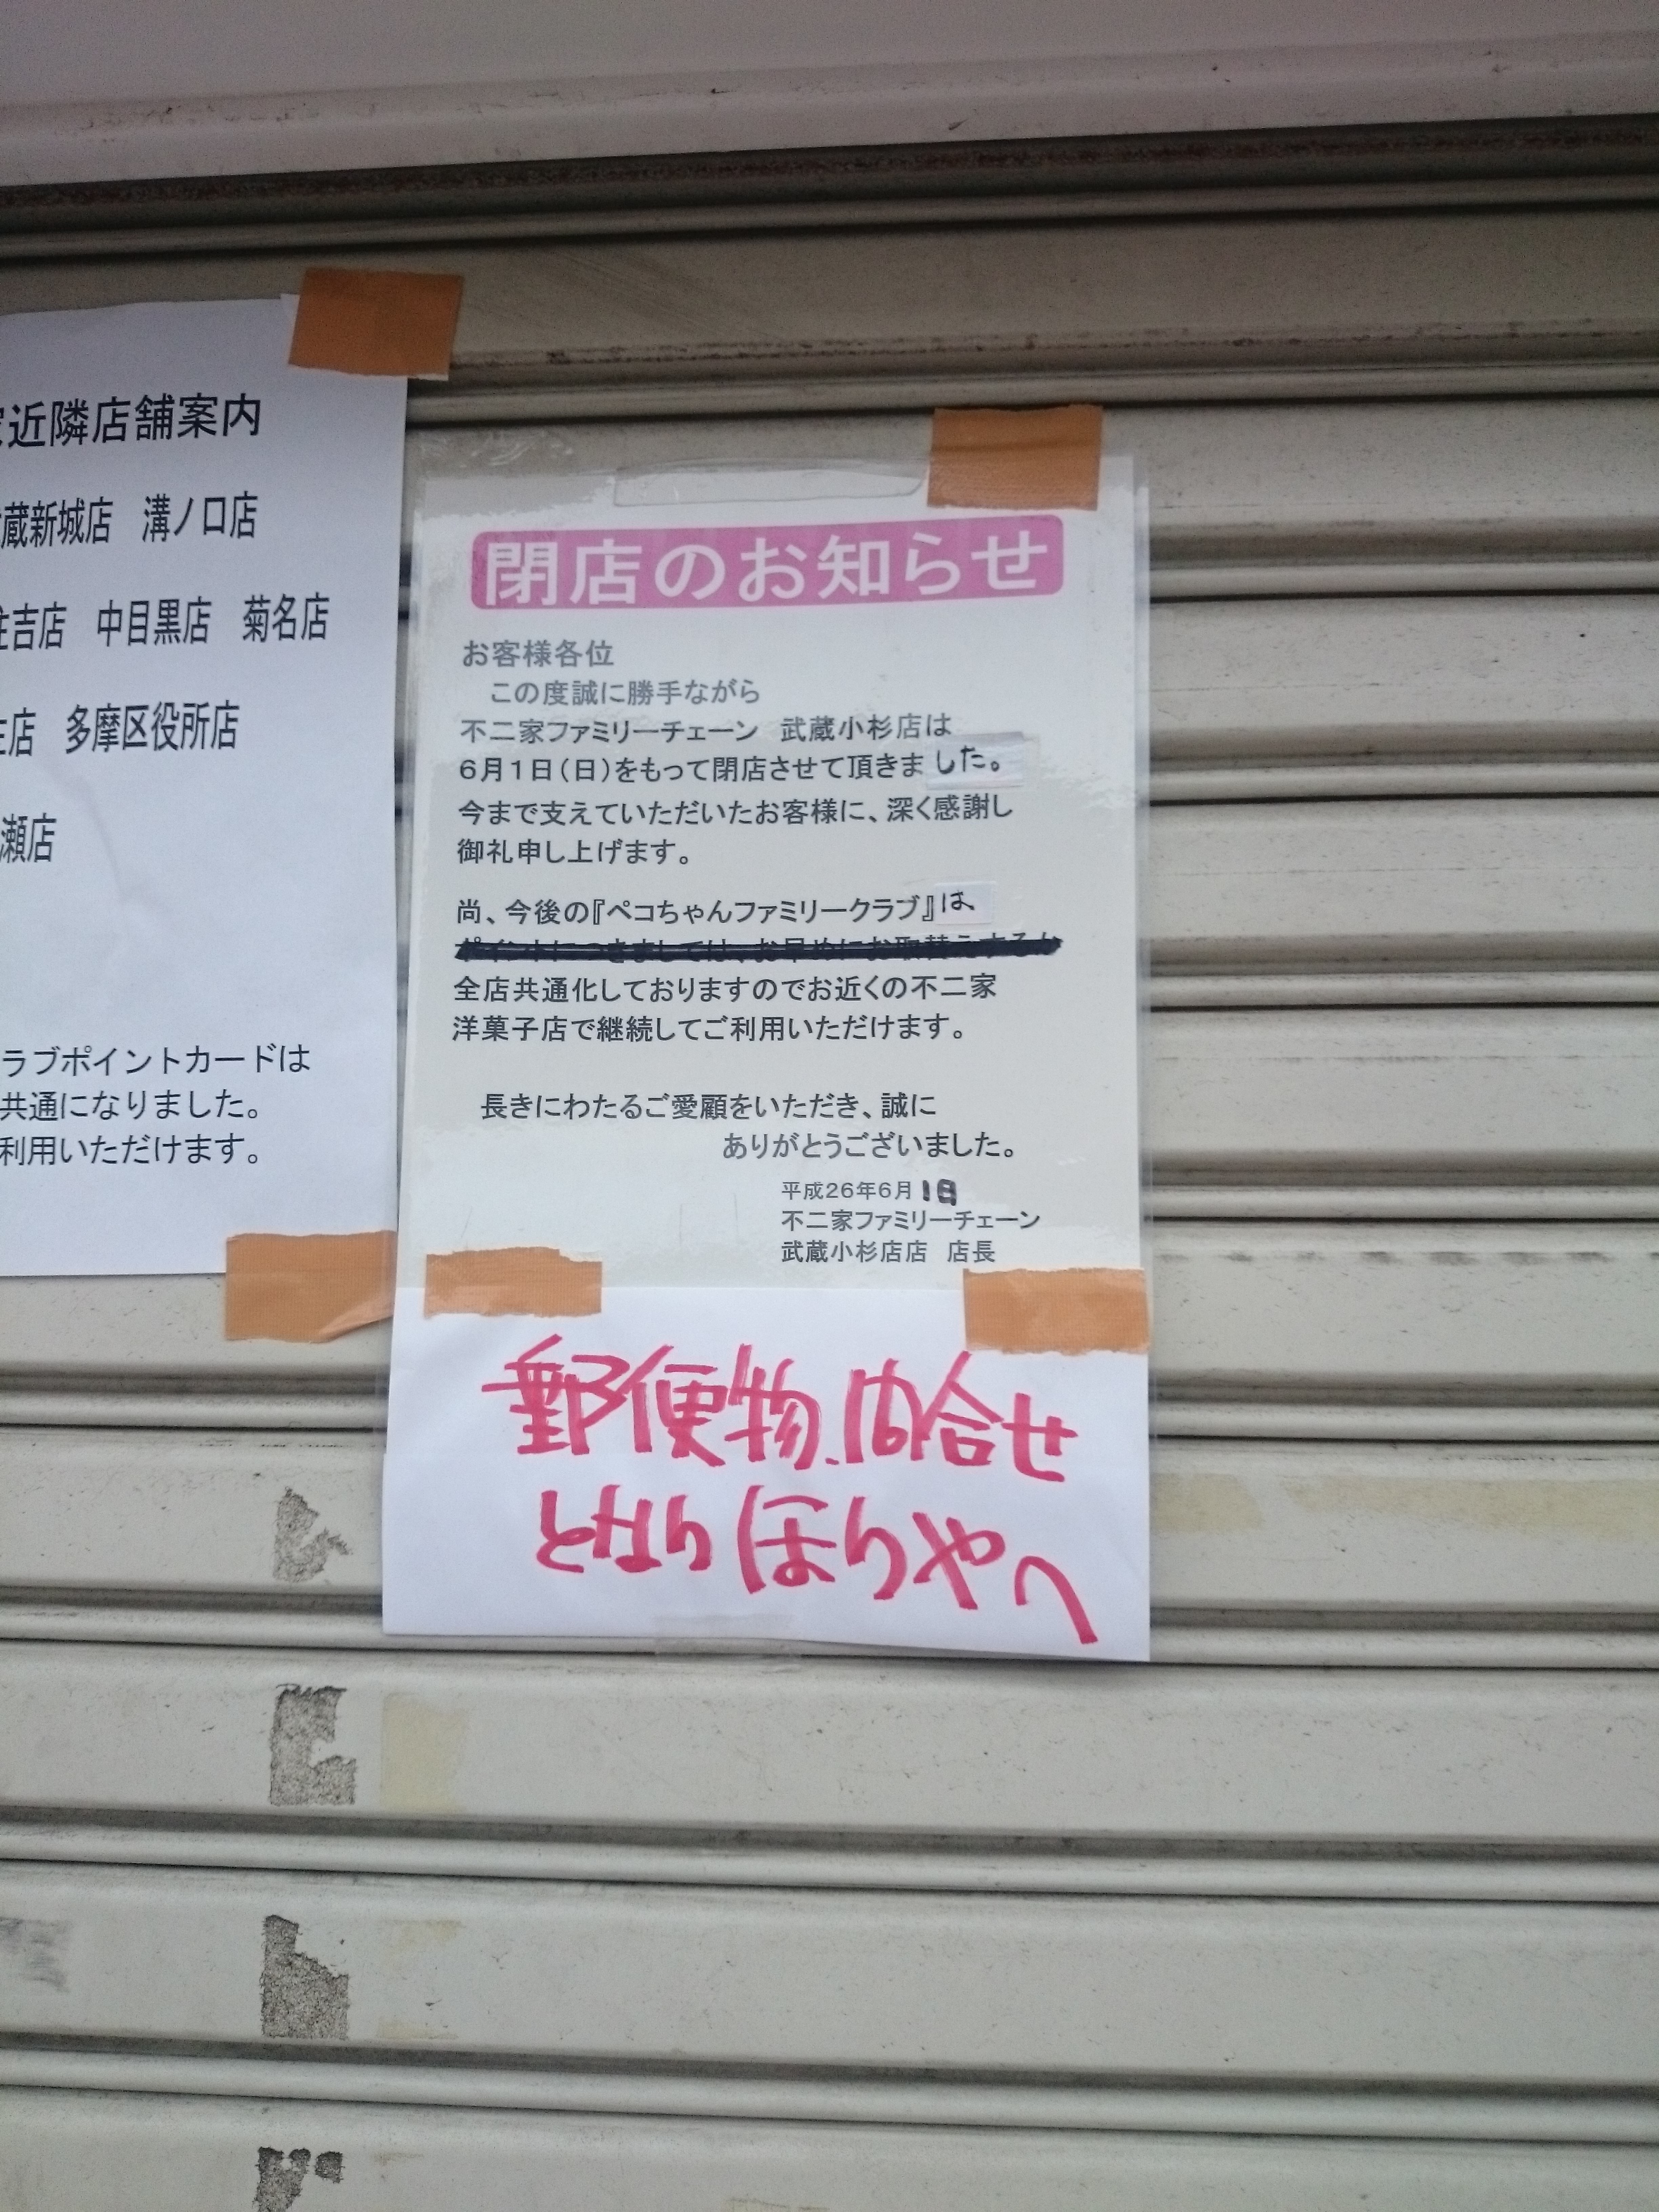 近隣店舗案内
蔵新城店　溝ノ口店
住吉店　中目黒店　菊名店
生店　多摩区役所店
瀬店
ラブポイントカードは
共通になりました。
利用いただけます。
閉店のお知らせ
お客様各位
この度誠に勝手ながら
不二家ファミリーチェーン　武蔵小杉店は
6月1日(日)をもって閉店させて頂きました。
今まで支えていただいたお客様に、深く感謝し
御礼申し上げます。
尚、今後の『ペコちゃんファミリークラブ』は
全店共通化しておりますのでお近くの不二家
洋菓子店で継続してご利用いただけます。
長きにわたるご愛顧をいただき、誠に
ありがとうございました。
平成26年6月1日
不二家ファミリーチェーン
武蔵小杉店店　店長
郵便物、问合せ
となりほりやへ